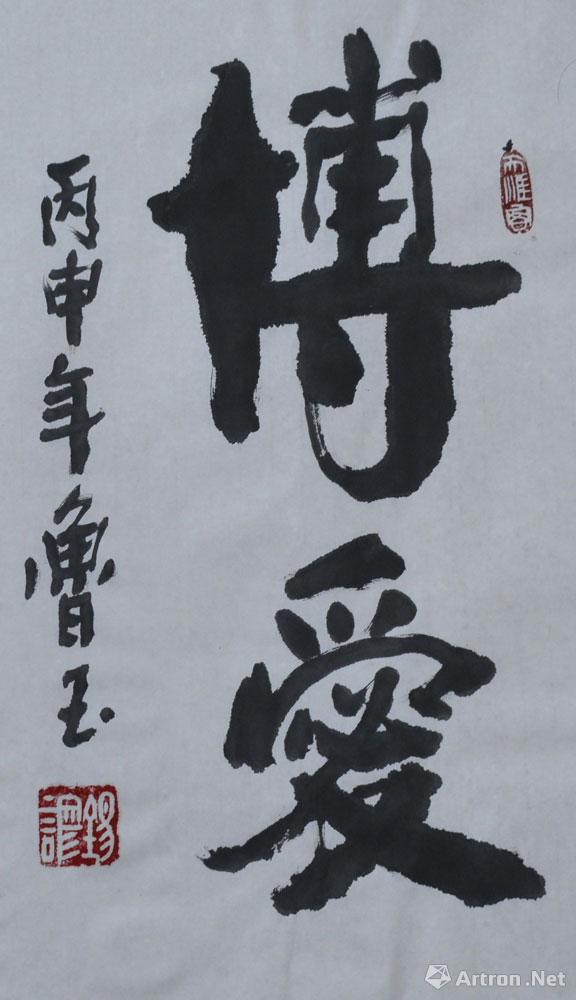 博愛
丙申年魯玉
Artron.Net